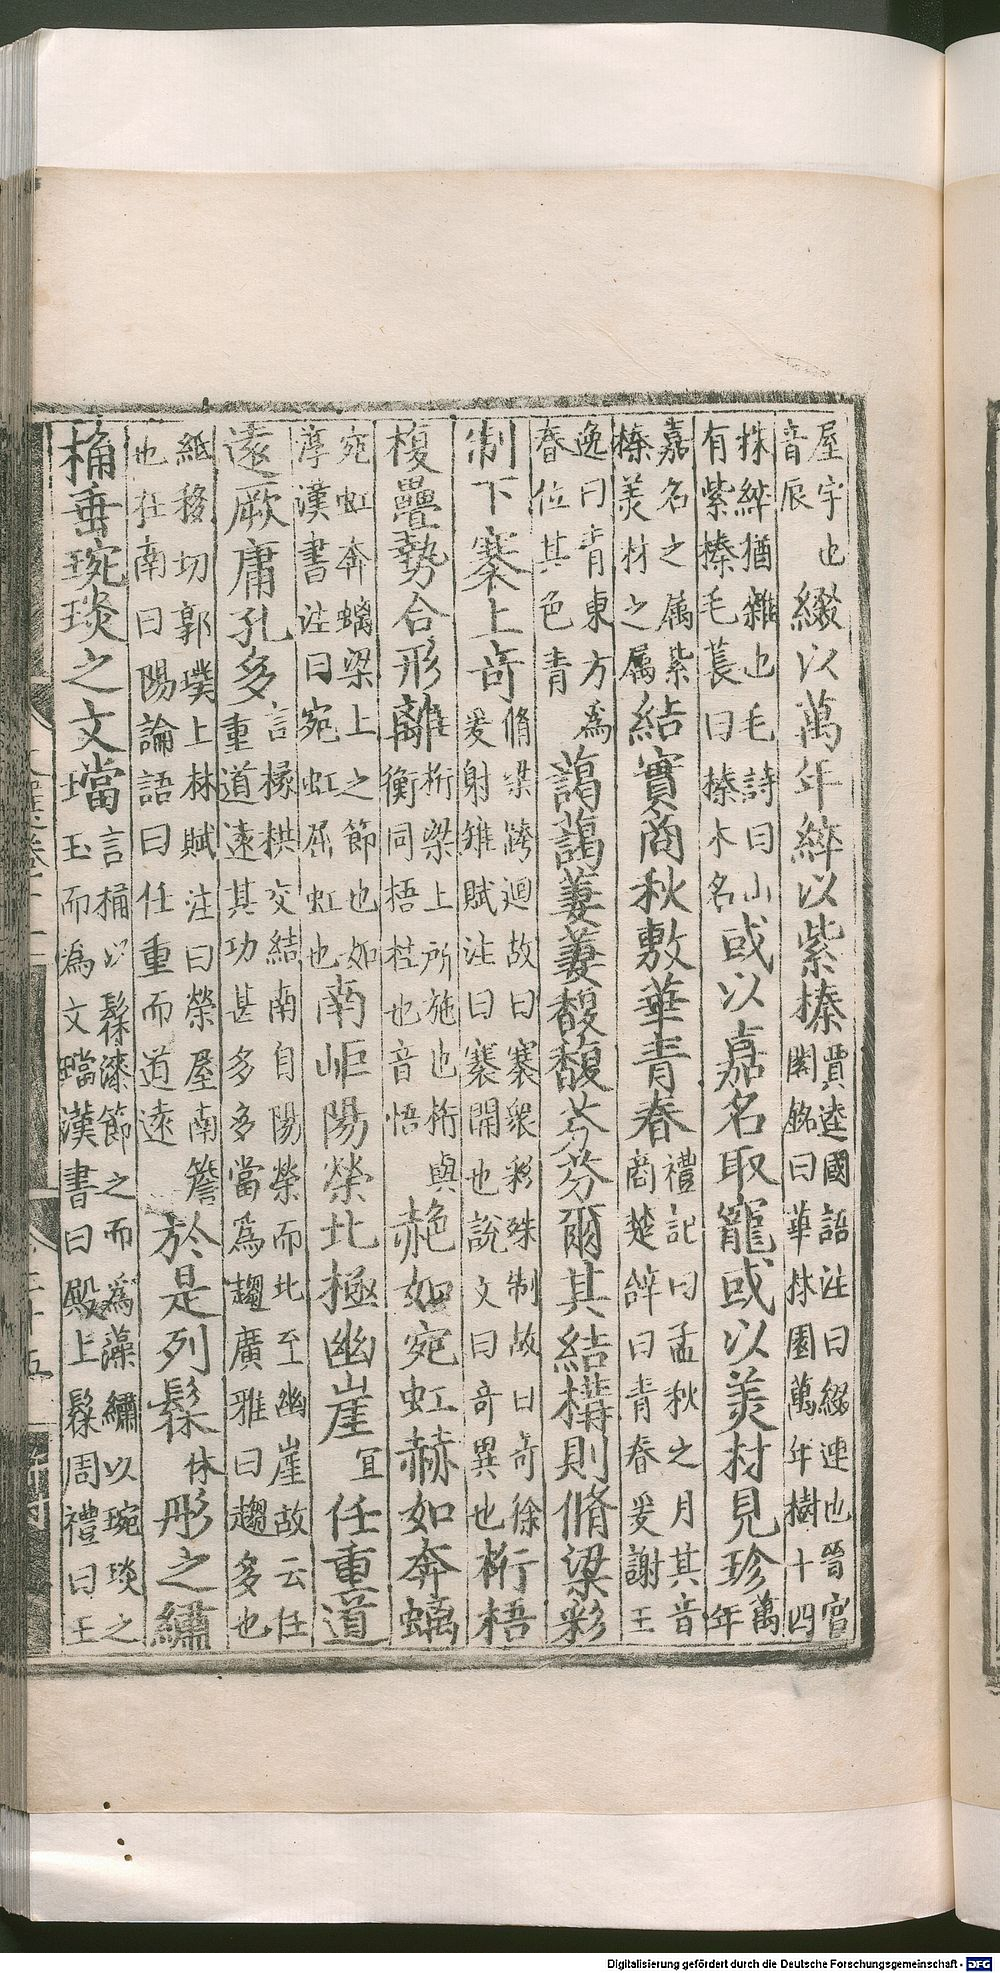 屋宇也音辰綴以萬年綷以紫榛賈逵國語注曰綴連也晉宮閣銘曰華林園萬年樹十四
株綷猶雜也毛詩曰山有紫榛毛萇曰榛木名或以嘉名取寵或以美材見珍萬年
嘉名之属紫榛美材之属結實商秋敷華青春禮記曰孟秋之月其音商楚辭曰青春爰謝王
逸曰青東方為春位其色青藹藹萋萋馥馥芬芬爾其結構則脩梁彩
制下褰上奇脩梁跨迴故曰褰衆彩殊制故曰奇徐爰射雉賦注曰褰開也說文曰奇異也桁梧
複疊勢合形離桁梁上所施也桁與衡同梧柱也音悟赩如宛虹赫如奔螭
宛虹奔螭梁上之節也如淳漢書注曰宛虹屈虹也南岠陽榮北極幽崖宜任重道
遠厥庸孔多言椽栱交結南自陽榮而北至幽崖故云任重道遠其功甚多多當為趨廣雅曰趨多也
紙移切郭璞上林賦注曰榮屋南簷也在南曰陽論語曰任重而道遠於是列髹休彤之繡
桷垂琬琰之文璫言桷以髹漆節之而為藻繡以琬琰之玉而為文璫漢書曰殿上髹周禮曰王
Digitalisierung gefördert durch die Deutsche Forschungsgemeinschaft - DFG